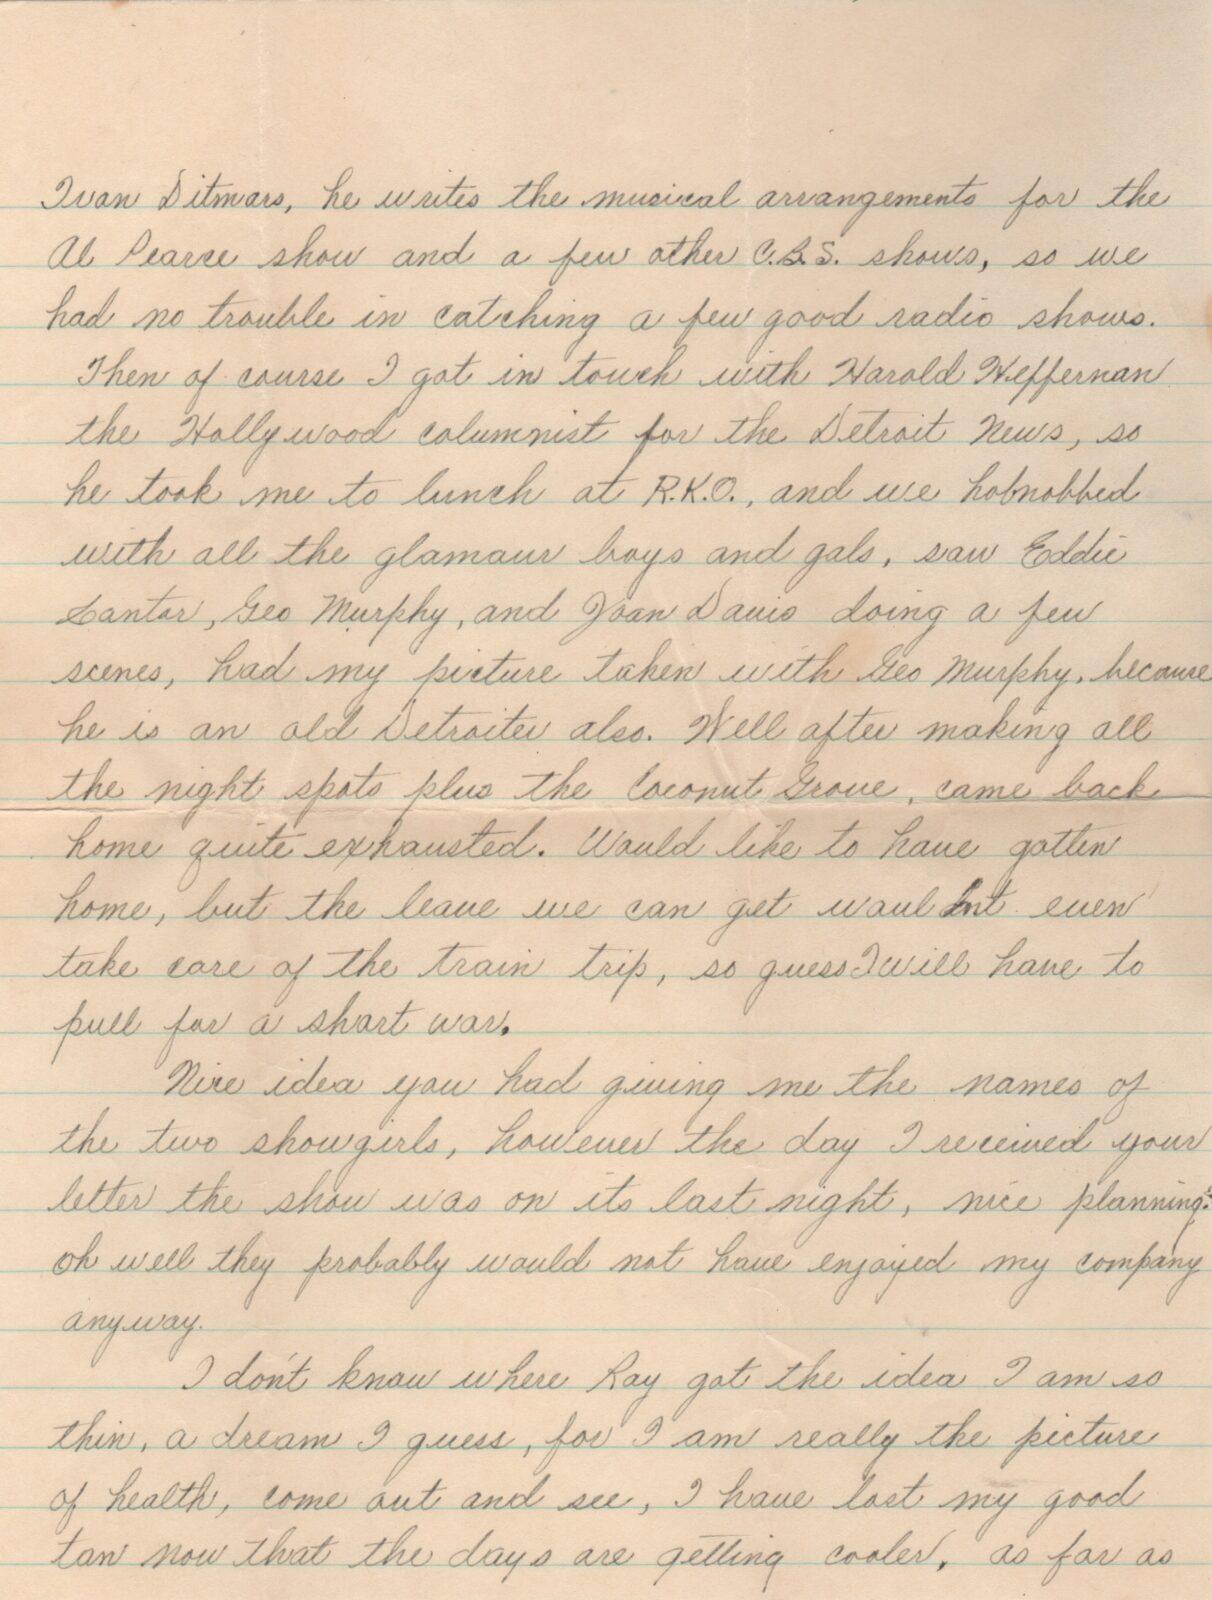 Ivan Ditmars, he writes the musical arrangements for the
Al Pearce show and a few other C.B.S. shows, so we
had no trouble in catching a few good radio shows.
Then of course I got in touch with Harold Heffernan
the Hollywood columnist for the Detroit News, so
he took me to lunch at R.K.O., and we hobnobbed
with all the glamour boys and gals, saw Eddie
Cantor, Geo Murphy, and Joan Davis doing a few
scenes, had my picture taken with Geo Murphy, because
he is an old Detroiter also. Well after making all
the night spots plus the Coconut Grove, came back
home quite exhausted. Would like to have gotten
home, but the leave we can get wouldnt even
take care of the train trip, so guess I will have to
pull for a short war.
Nice idea you had giving me the names of
the two showgirls, however the day I received your
letter the show was on its last night, nice planning!
oh well they probably would not have enjoyed my company
anyway.
I don't know where Ray got the idea I am so
thin, a dream I guess, for I am really the picture
of health, come out and see, I have lost my good
tan now that the days are getting cooler, as far as